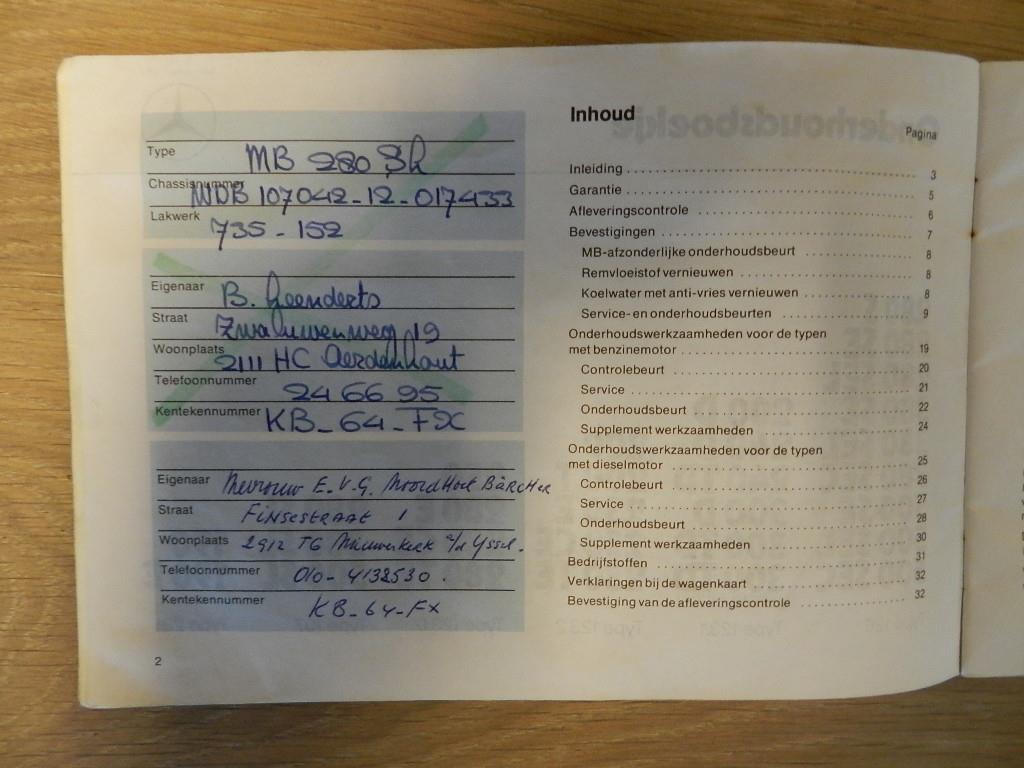 Type MB 280 SL
Chassisnummer WDB 107042-12-017433
Lakwerk 735-152
Eigenaar B. Geenderts
Straat Zwaluwenweg 19
Woonplaats 2111 HC Aerdenhout
Telefoonnummer 24 66 95
Kentekennummer KB-64-FX
Eigenaar Mevrouw E.V.G. Noordhoek Bärcher
Straat Finsestraat 1
Woonplaats 2912 TG Nieuwerkerk a/d Yssel.
Telefoonnummer 010-4138530.
Kentekennummer KB-64-FX
2
Inhoud
Pagina
Inleiding 3
Garantie 5
Afleveringscontrole 6
Bevestigingen 7
MB-afzonderlijke onderhoudsbeurt 8
Remvloeistof vernieuwen 8
Koelwater met anti-vries vernieuwen 8
Service- en onderhoudsbeurten 9
Onderhoudswerkzaamheden voor de typen
met benzinemotor 19
Controlebeurt 20
Service 21
Onderhoudsbeurt 22
Supplement werkzaamheden 24
Onderhoudswerkzaamheden voor de typen
met dieselmotor 25
Controlebeurt 26
Service 27
Onderhoudsbeurt 28
Supplement werkzaamheden 30
Bedrijfstoffen 31
Verklaringen bij de wagenkaart 32
Bevestiging van de afleveringscontrole 32